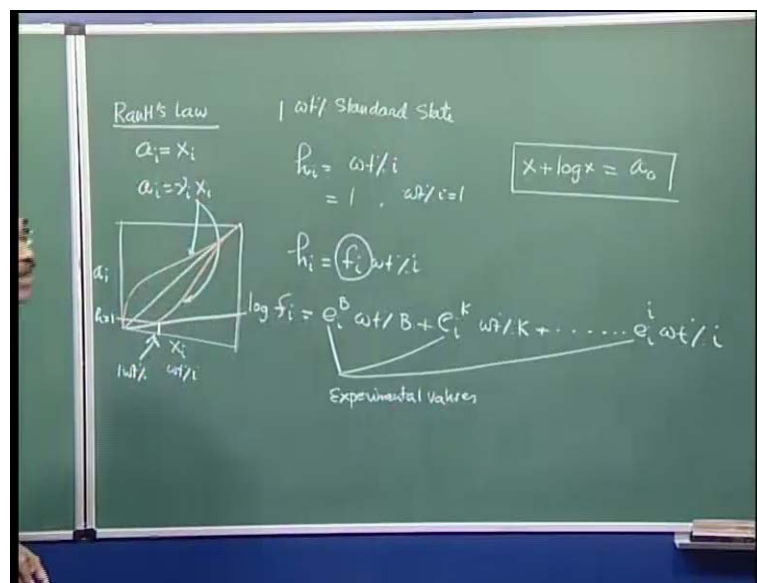 Rault's Law
a_i = x_i
a_i = γ_i x_i
a_i
h=1
x_i
1wt% wt% i
1 wt% Standard State
h_i = wt% i
= 1 , wt% i = 1
h_i = f_i wt% i
log f_i = e_i^B wt% B + e_i^K wt% K + ....... e_i^i wt% i
Experimental values
x + log x = a_0